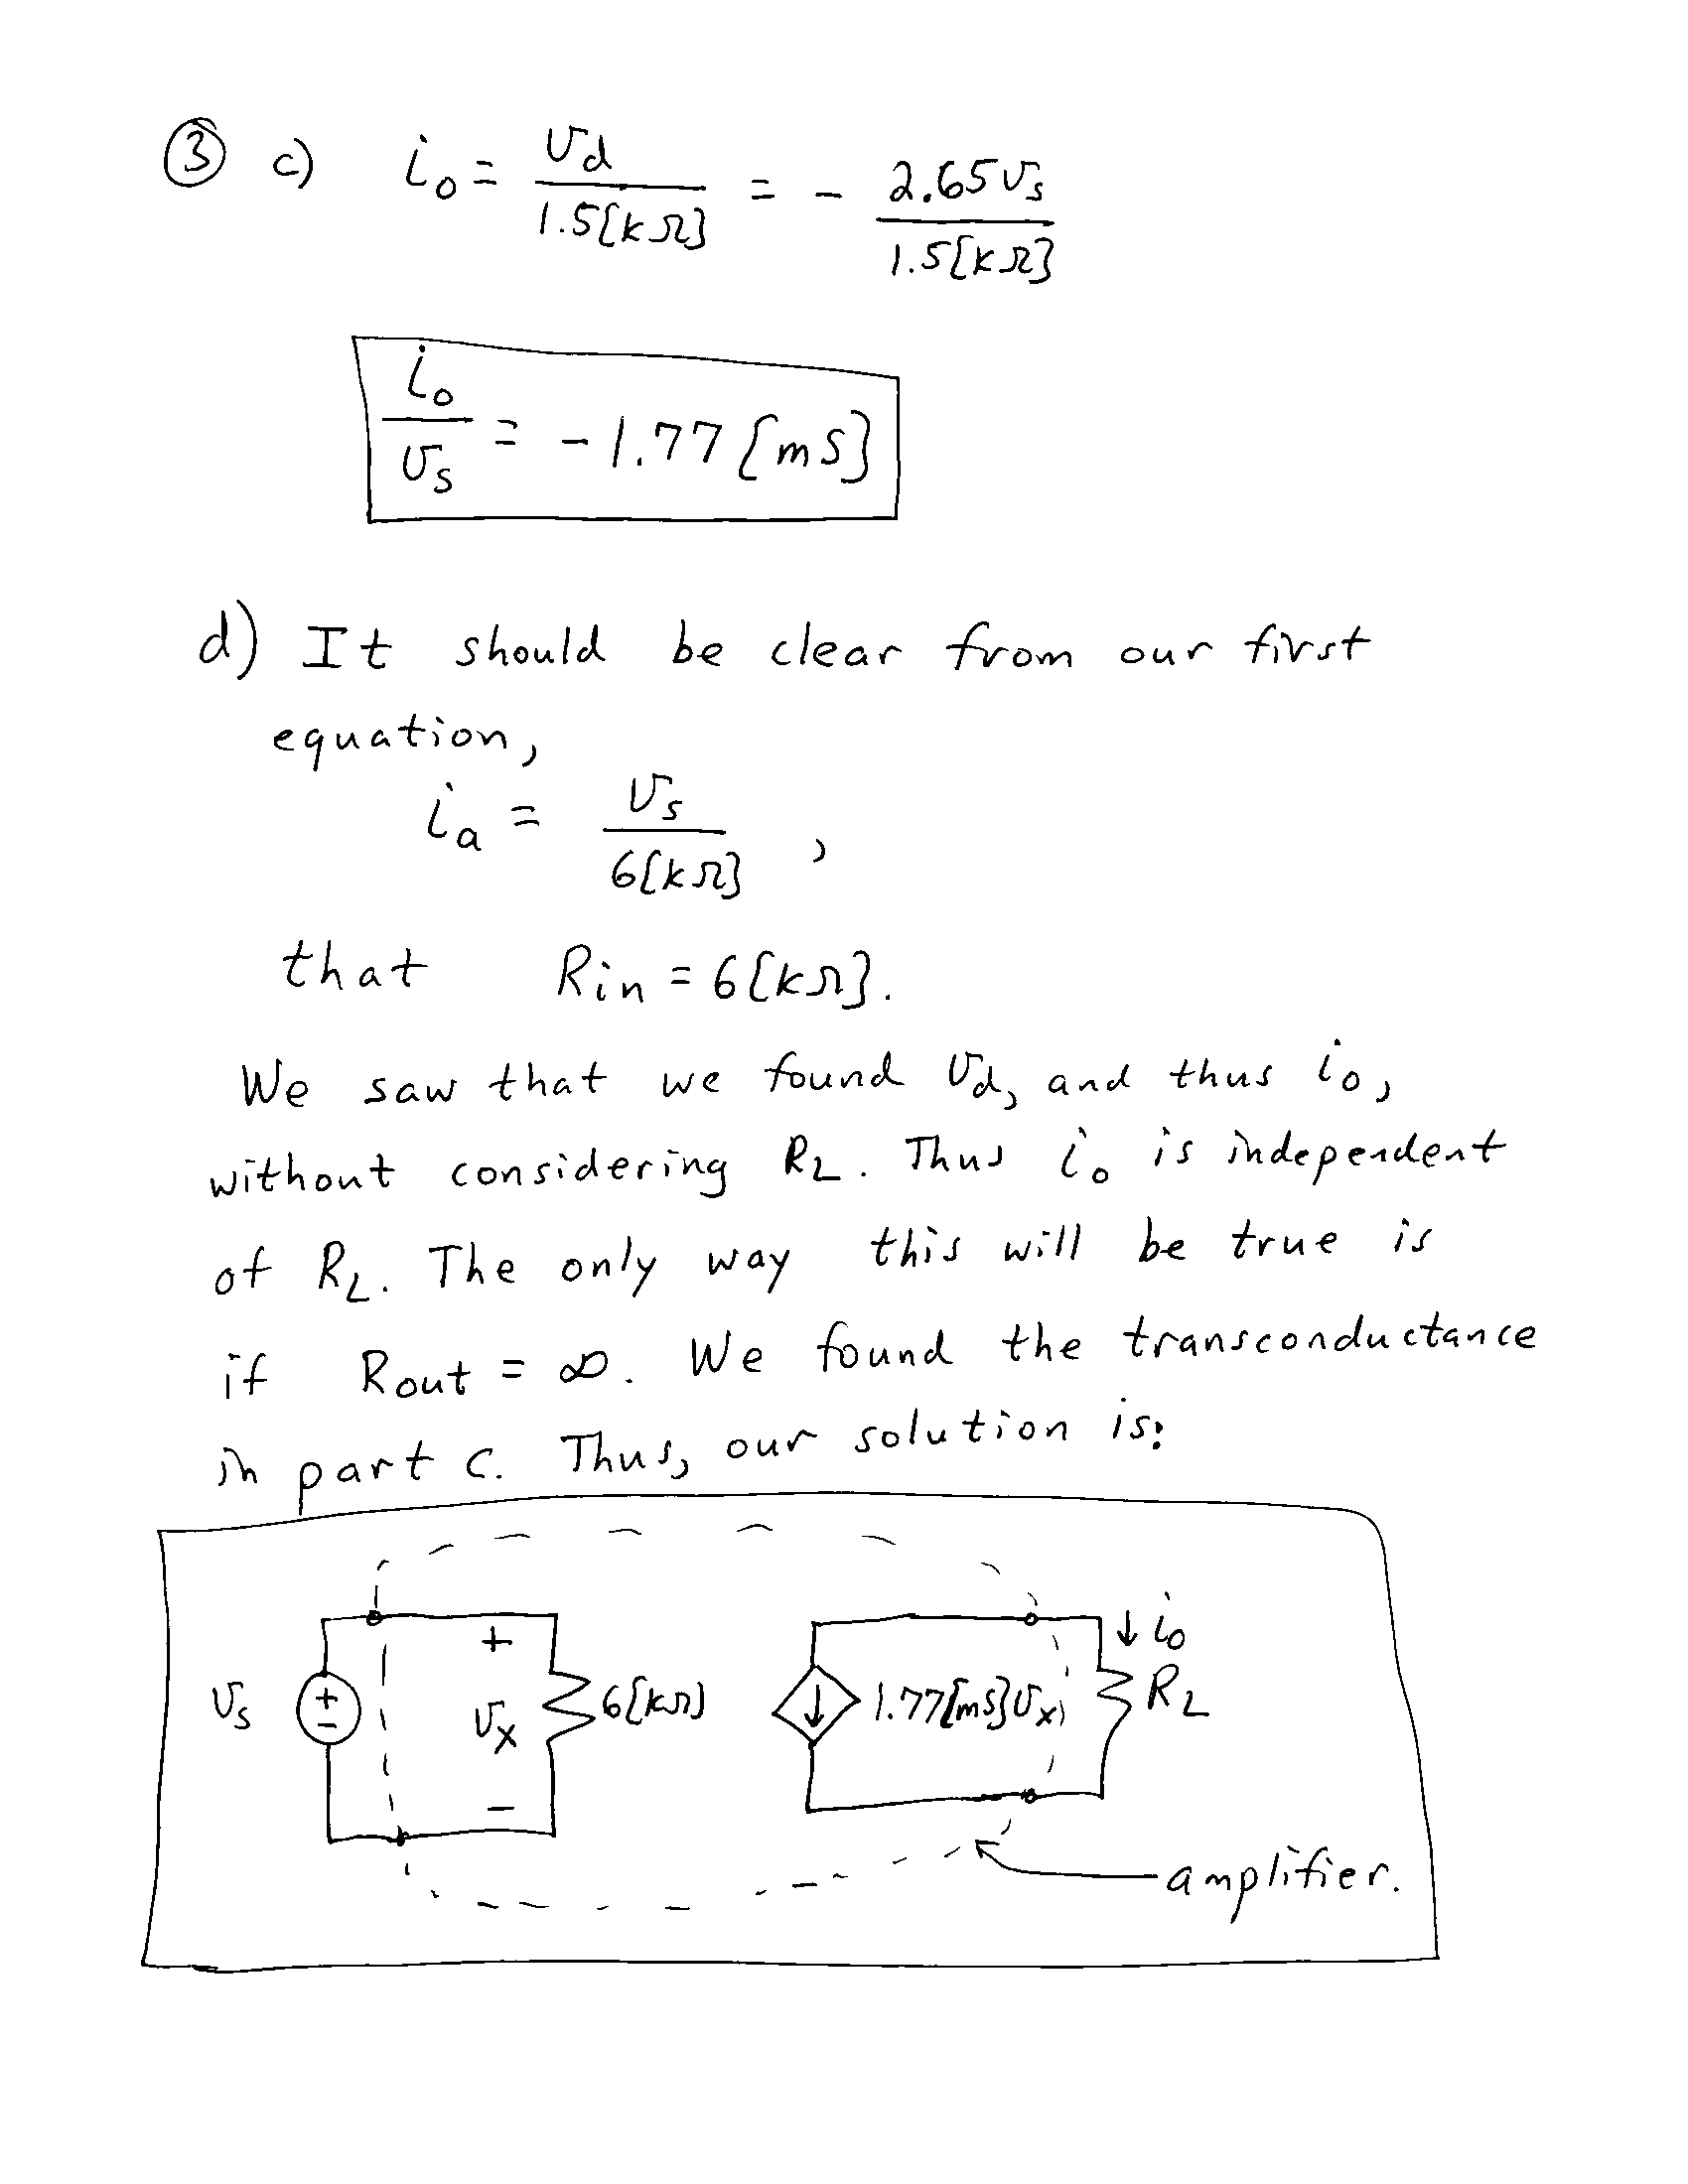 ③ c) i₀ = v_d / 1.5[kΩ] = - 2.65v_s / 1.5[kΩ]
i₀ / v_s = -1.77 [mS]
d) It should be clear from our first
equation,
i_a = v_s / 6[kΩ] ,
that R_in = 6[kΩ].
We saw that we found v_d, and thus i₀,
without considering R_L. Thus i₀ is independent
of R_L. The only way this will be true is
if R_out = ∞. We found the transconductance
in part c. Thus, our solution is:
+ ↓ i₀
v_s + - v_x 6[kΩ] ↓ 1.77[mS]v_x R_L
-
amplifier.